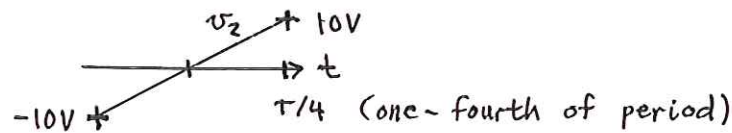 v₂ 10V
t
-10V T/4 (one-fourth of period)